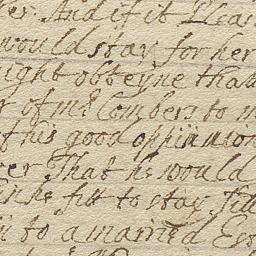 And if it Pleas
would stay for her
ight obteyne that
r of mr Combers to m
f his good oppinion
er That he would
he fitt to stay till
to a married Est